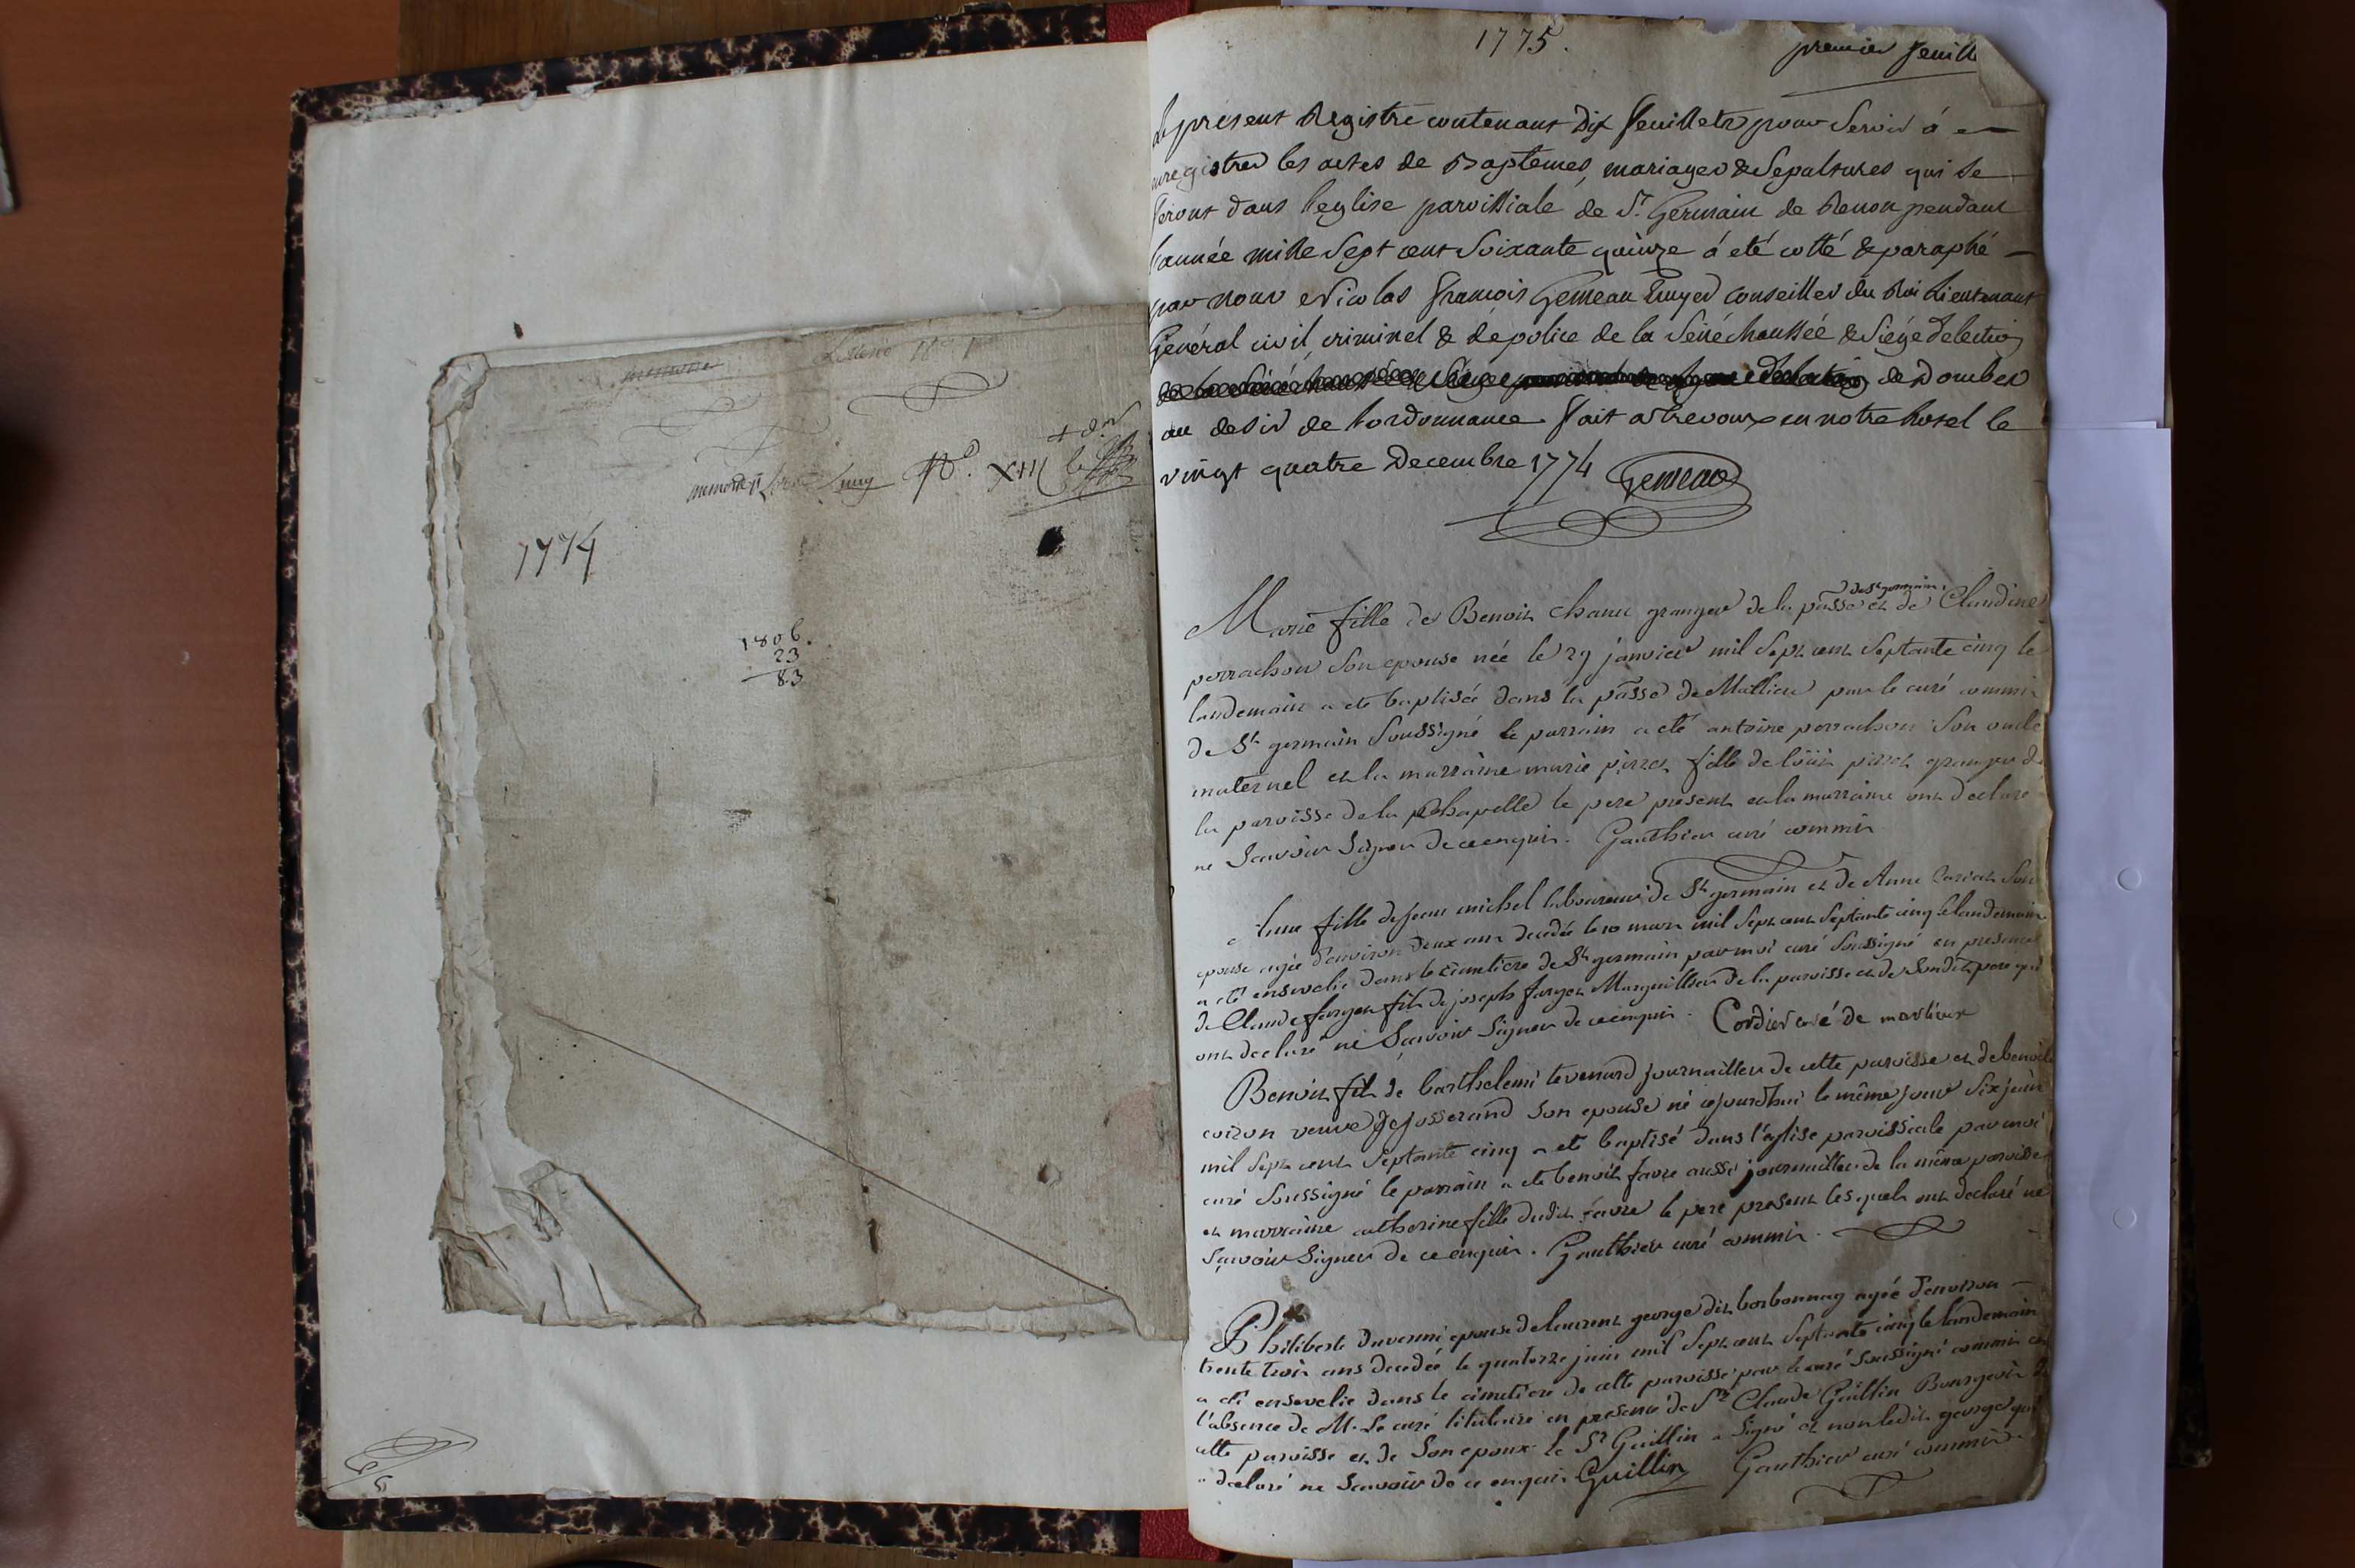 1774
1806.
23
83
N.o XIII
1775.
premier feuill
Le présent Registre contenant Dix feuillets pour Servir à en
regîstrer les actes de Baptemes, mariages & Sepultures qui se
feront dans l'eglise paroissiale de St. Germain de Renon pendant
l'année mille Sept cent Soixante quinze à eté cotté & paraphé
par nous Nicolas françois Gemeau Ecuyer conseiller du Roi Lieutenant
Général civil criminel & de police de la Sénéchaussée & Siége delection
de Dombes
au desir de lordonnance. fait a trevoux en notre hotel le
vingt quatre Decembre 1774 Gemeau
de St germain
Marie fille de Benoit chanu granger de la passe et de Claudine
perrachon Son epouse née le 29 janvier mil Sept cent Septante cinq le
landemain a eté baptisée dans la passe de Marlieu par le curé commis
de St germain Soussigné le parrain a eté antoine perrachon Son oncle
maternel et la marraine marie pirret fille de loüis pirret granger de
la paroisse de la Chapelle le pere present et la marraine ont declaré
ne Scavoir Signer de ce enquis. Gauthier curé commis
Anne fille de jean michel laboureur de St germain et de Anne Son
epouse agée d'environ deux ans decedée le 10 mars mil Sept cent Septante cinq le landemain
a eté ensevelie dans le cimetiere de St germain par moi curé Soussigné en presence
de Claude farget fils de joseph farget Marguillier de la paroisse et de Sondit pere qui
ont declaré ne Scavoir Signer de ce enquis. Cordier curé de marlieux
Benoit fils de barthelemi tevenard journaillier de cette paroisse et de benoite
coizon veuve de josserand Son epouse né cejourdhui le même jour Six juin
mil Sept cent Septante cinq a eté baptisé dans l'eglise paroissiale par moi
curé Soussigné le parrain a eté benoit favre aussi journaillier de la même paroisse
et marraine catherine fille dudit favre le pere present les quels ont declaré ne
Sçavoir Signer de ce enquis. Gauthier curé commis.
Philiberte Duverni epouse de laurent george dit borbonnay agée d'environ
trente trois ans decedée le quatorze juin mil Sept cent Septante cinq le landemain
a eté ensevelie dans le cimetiere de cette paroisse par le curé Soussigné commis en
l'absence de M. Le curé titulaire en presence de Sr Claude Guillin Bourgeois de
cette paroisse et de Son epoux. le Sr Guillin a Signé et non ledit george qui
a declaré ne Scavoir de ce enquis Guillin Gauthier curé commis